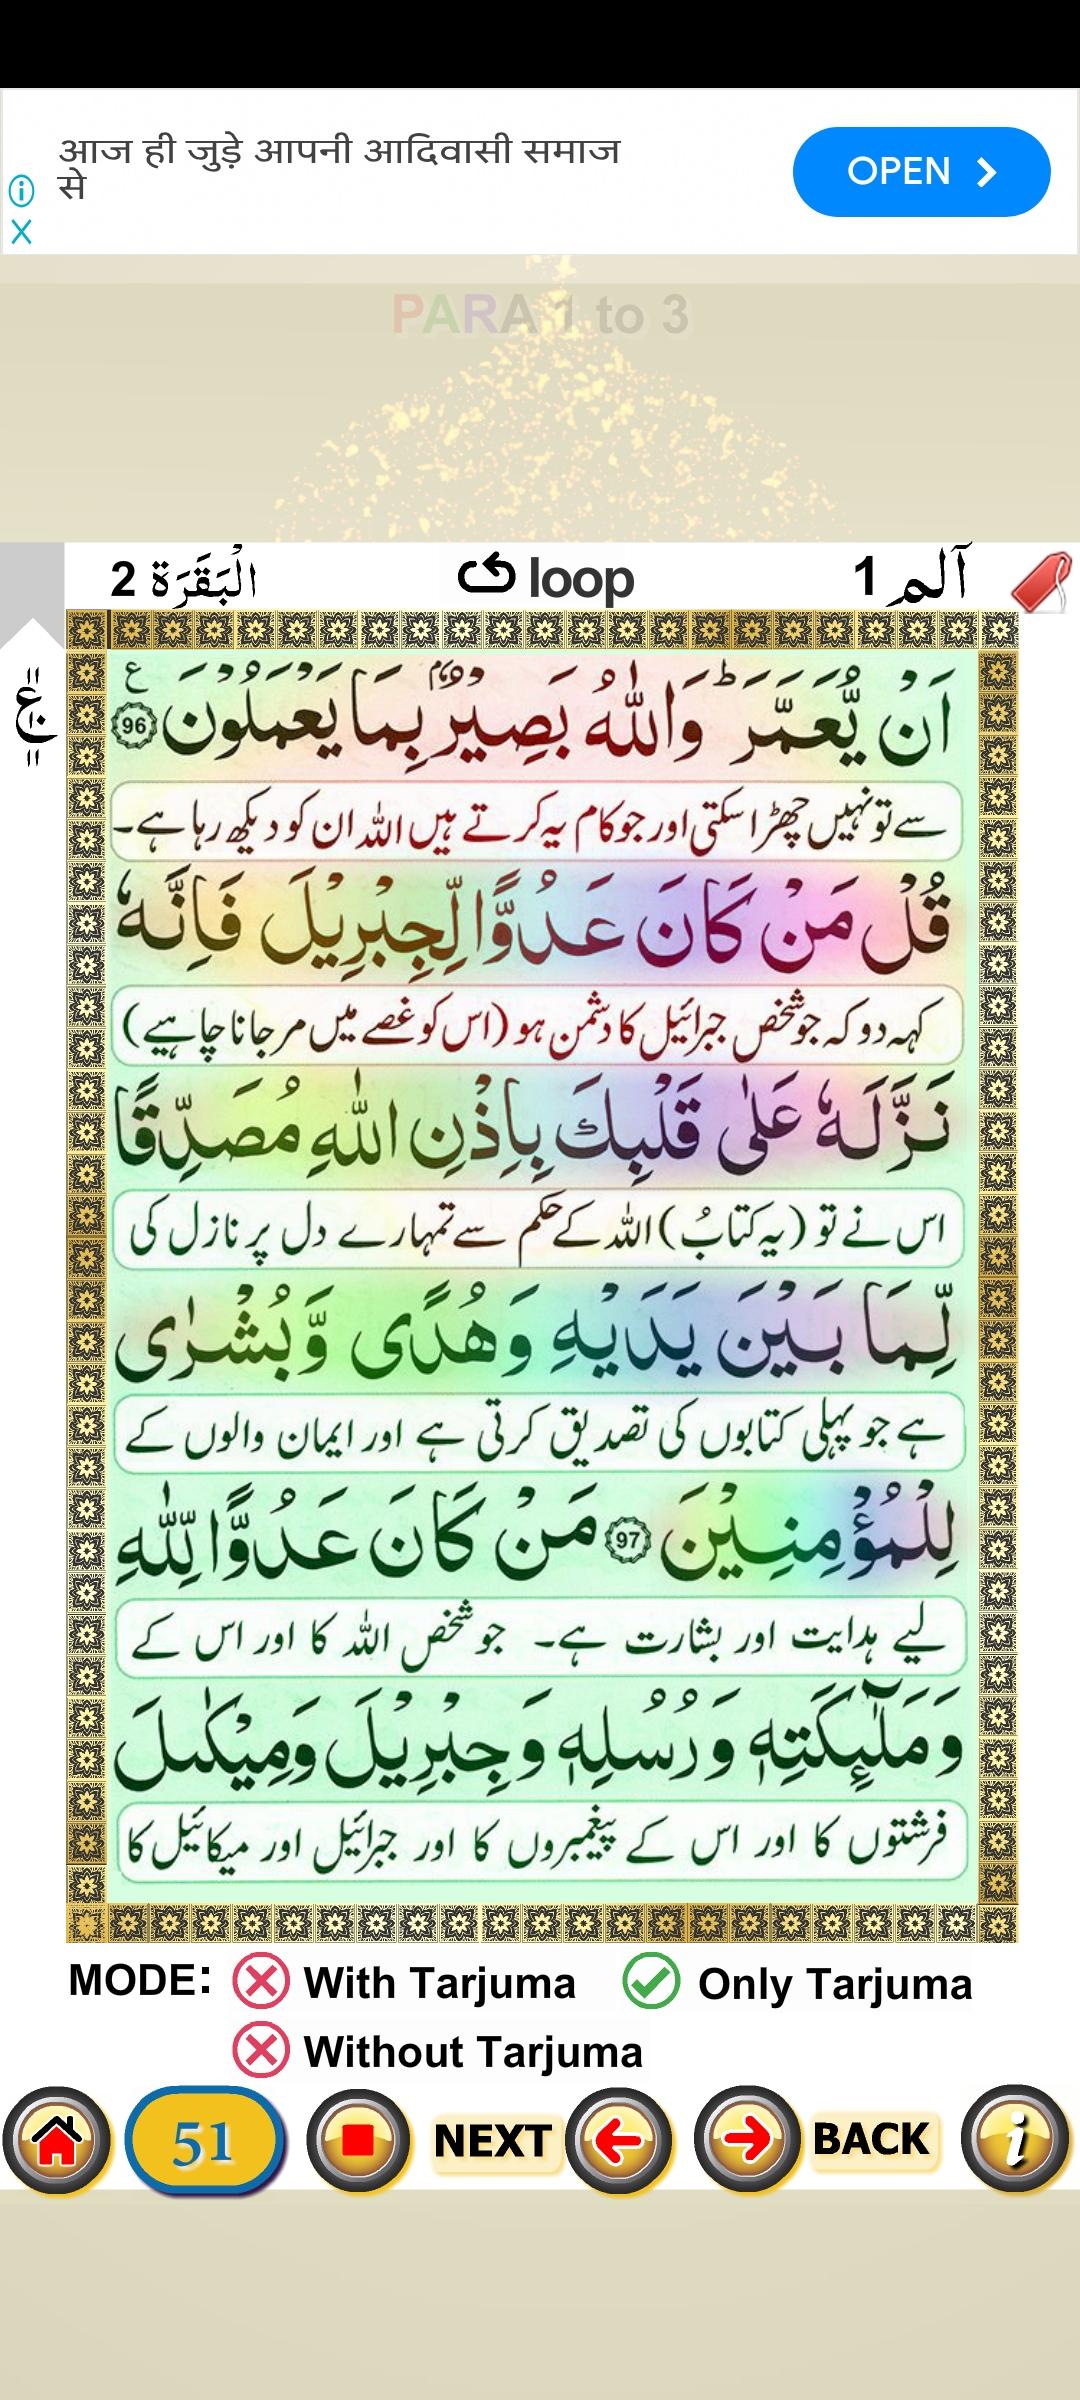 आज ही जुड़े आपनी आदिवासी समाज
से
OPEN
PARA 1 to 3
2 الْبَقَرَة loop 1 آلم
اَنْ يُّعَمَّرَ ؕ وَاللّٰهُ بَصِيْرٌۢ بِمَا يَعْمَلُوْنَ 96 ع
سے تو نہیں چھڑا سکتی اور جو کام یہ کرتے ہیں اللہ ان کو دیکھ رہا ہے۔
قُلْ مَنْ كَانَ عَدُوًّا لِّجِبْرِيْلَ فَاِنَّهٗ
کہہ دو کہ جو شخص جبرائیل کا دشمن ہو (اس کو غصے میں مر جانا چاہیے)
نَزَّلَهٗ عَلٰى قَلْبِكَ بِاِذْنِ اللّٰهِ مُصَدِّقًا
اس نے تو (یہ کتاب) اللہ کے حکم سے تمہارے دل پر نازل کی
لِّمَا بَيْنَ يَدَيْهِ وَهُدًى وَّبُشْرٰى
ہے جو پہلی کتابوں کی تصدیق کرتی ہے اور ایمان والوں کے
لِلْمُؤْمِنِيْنَ 97 مَنْ كَانَ عَدُوًّا لِّلّٰهِ
لیے ہدایت اور بشارت ہے۔ جو شخص اللہ کا اور اس کے
وَمَلٰٓئِكَتِهٖ وَرُسُلِهٖ وَجِبْرِيْلَ وَمِيْكٰىلَ
فرشتوں کا اور اس کے پیغمبروں کا اور جبرائیل اور میکائیل کا
MODE: With Tarjuma Only Tarjuma
Without Tarjuma
51 NEXT BACK i